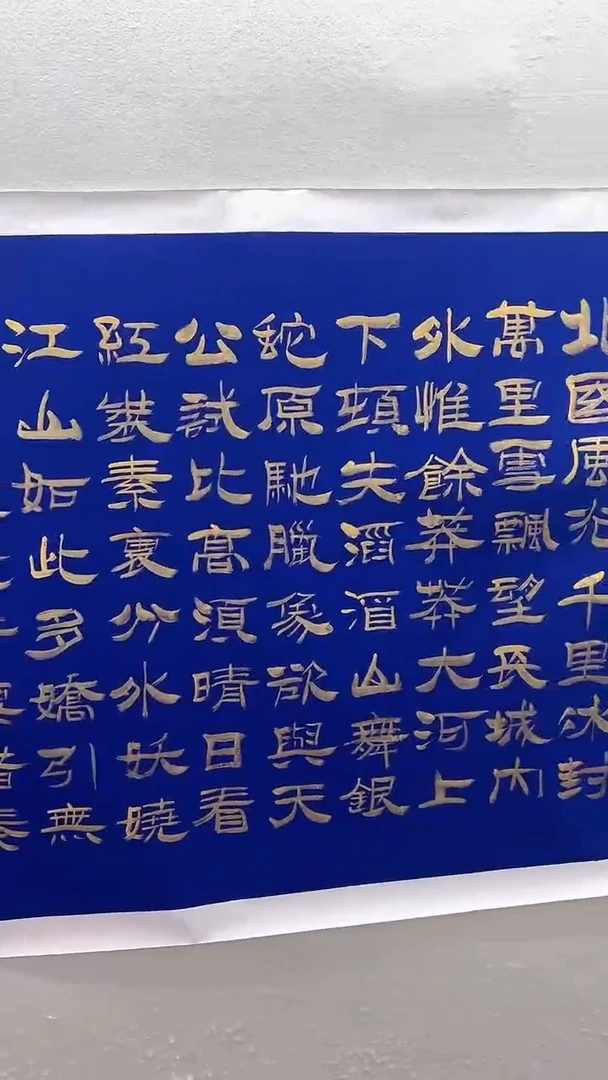 北國風光千里冰封
萬里雪飄望長城內
外惟餘莽莽大河上
下頓失滔滔山舞銀
蛇原馳臘象欲與天
公試比高須晴日看
紅裝素裹分外妖嬈
江山如此多嬌引無